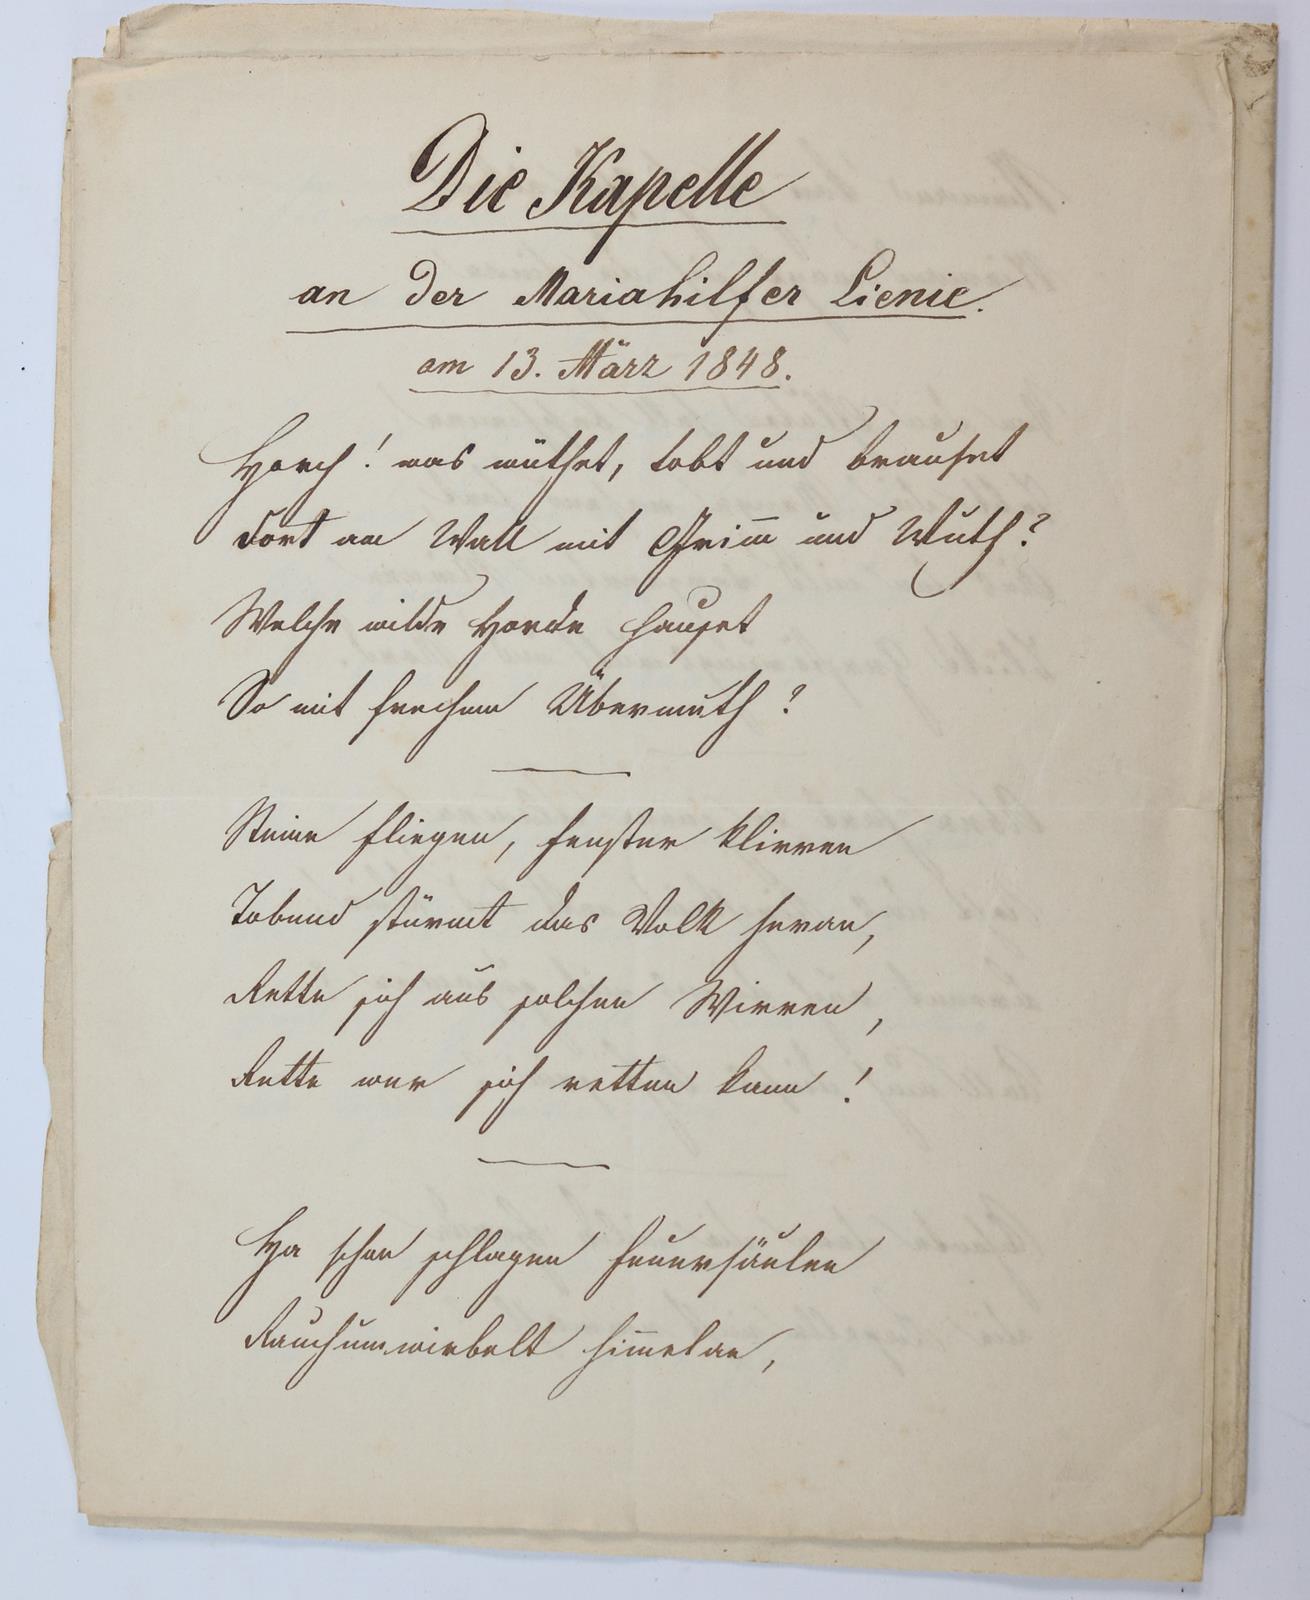 Die Kapelle
an der Mariahilfer Lienie.
am 13. März 1848.
Horch! was wüthet, tobt und brauset
dort am Wall mit Grim̄ und Wuth?
Welche wilde Horde hauset
So mit frechem Übermuth?
Steine fliegen, Fenster klirren
Tobend stürmt das Volk heran,
Rette sich aus solchen Wirren,
Rette wer sich retten kann!
Ha schon schlagen Feuersäulen
Rauchumwirbelt him̄elan,